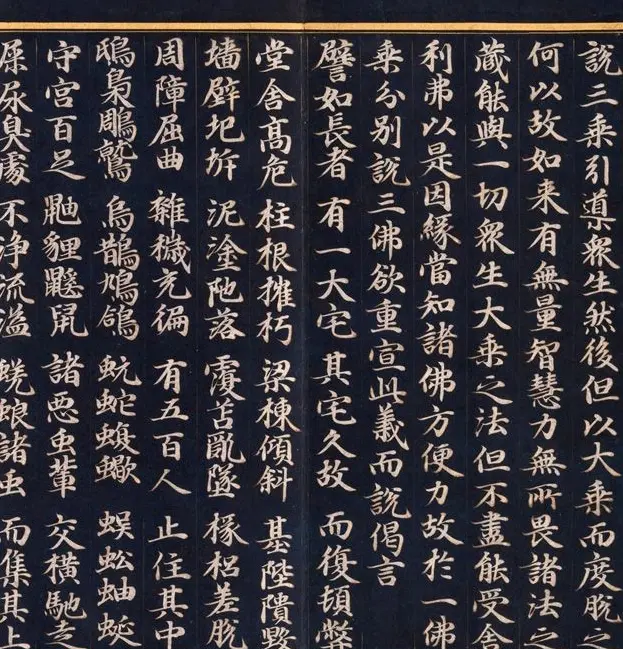 說三乘引導衆生然後但以大乘而度脫之
何以故如来有無量智慧力無所畏諸法之
藏能與一切衆生大乘之法但不盡能受舍
利弗以是因緣當知諸佛方便力故於一佛
乘分別說三佛欲重宣此義而說偈言
譬如長者 有一大宅 其宅久故 而復頓弊
堂舍髙危 柱根摧朽 梁棟傾斜 基陛隤毀
墻壁圯坼 泥塗阤落 覆苫亂墜 椽梠差脫
周障屈曲 雜穢充徧 有五百人 止住其中
鴟梟鵰鷲 烏鵲鳩鴿 蚖蛇蝮蠍 蜈蚣蚰蜒
守宮百足 鼬貍鼷鼠 諸惡虫輩 交橫馳走
屎尿臭處 不淨流溢 蜣蜋諸虫 而集其上